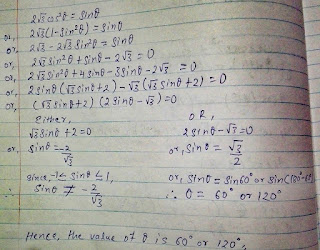 2√3 cos²θ = sinθ
or, 2√3 (1 - sin²θ) = sinθ
or, 2√3 - 2√3 sin²θ = sinθ
or, 2√3 sin²θ + sinθ - 2√3 = 0
or, 2√3 sin²θ + 4sinθ - 3sinθ - 2√3 = 0
or, 2sinθ (√3 sinθ + 2) - √3 (√3 sinθ + 2) = 0
or, (√3 sinθ + 2) (2sinθ - √3) = 0
Either,
√3 sinθ + 2 = 0
or, sinθ = -2/√3
since, -1 ≤ sinθ ≤ 1,
∴ sinθ ≠ -2/√3
OR,
2sinθ - √3 = 0
or, sinθ = √3/2
or, sinθ = sin60° or sin(180°-60°)
∴ θ = 60° or 120°
Hence, the value of θ is 60° or 120°.